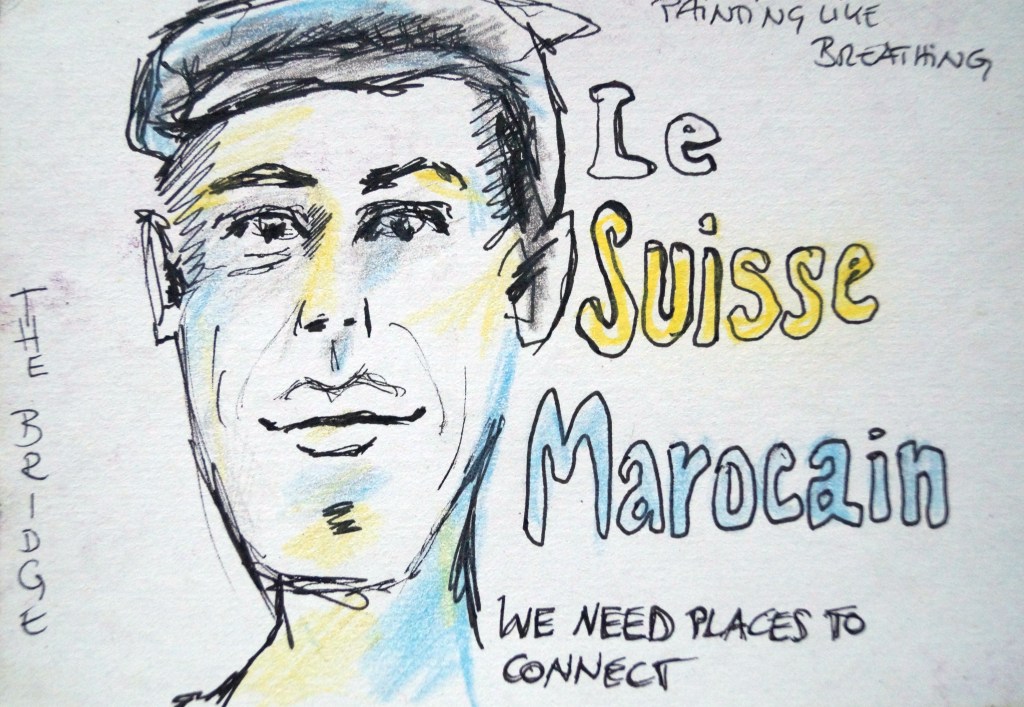 PAINTING LIKE
BREATHING
Le
Suisse
Marocain
THE BRIDGE
WE NEED PLACES TO
CONNECT